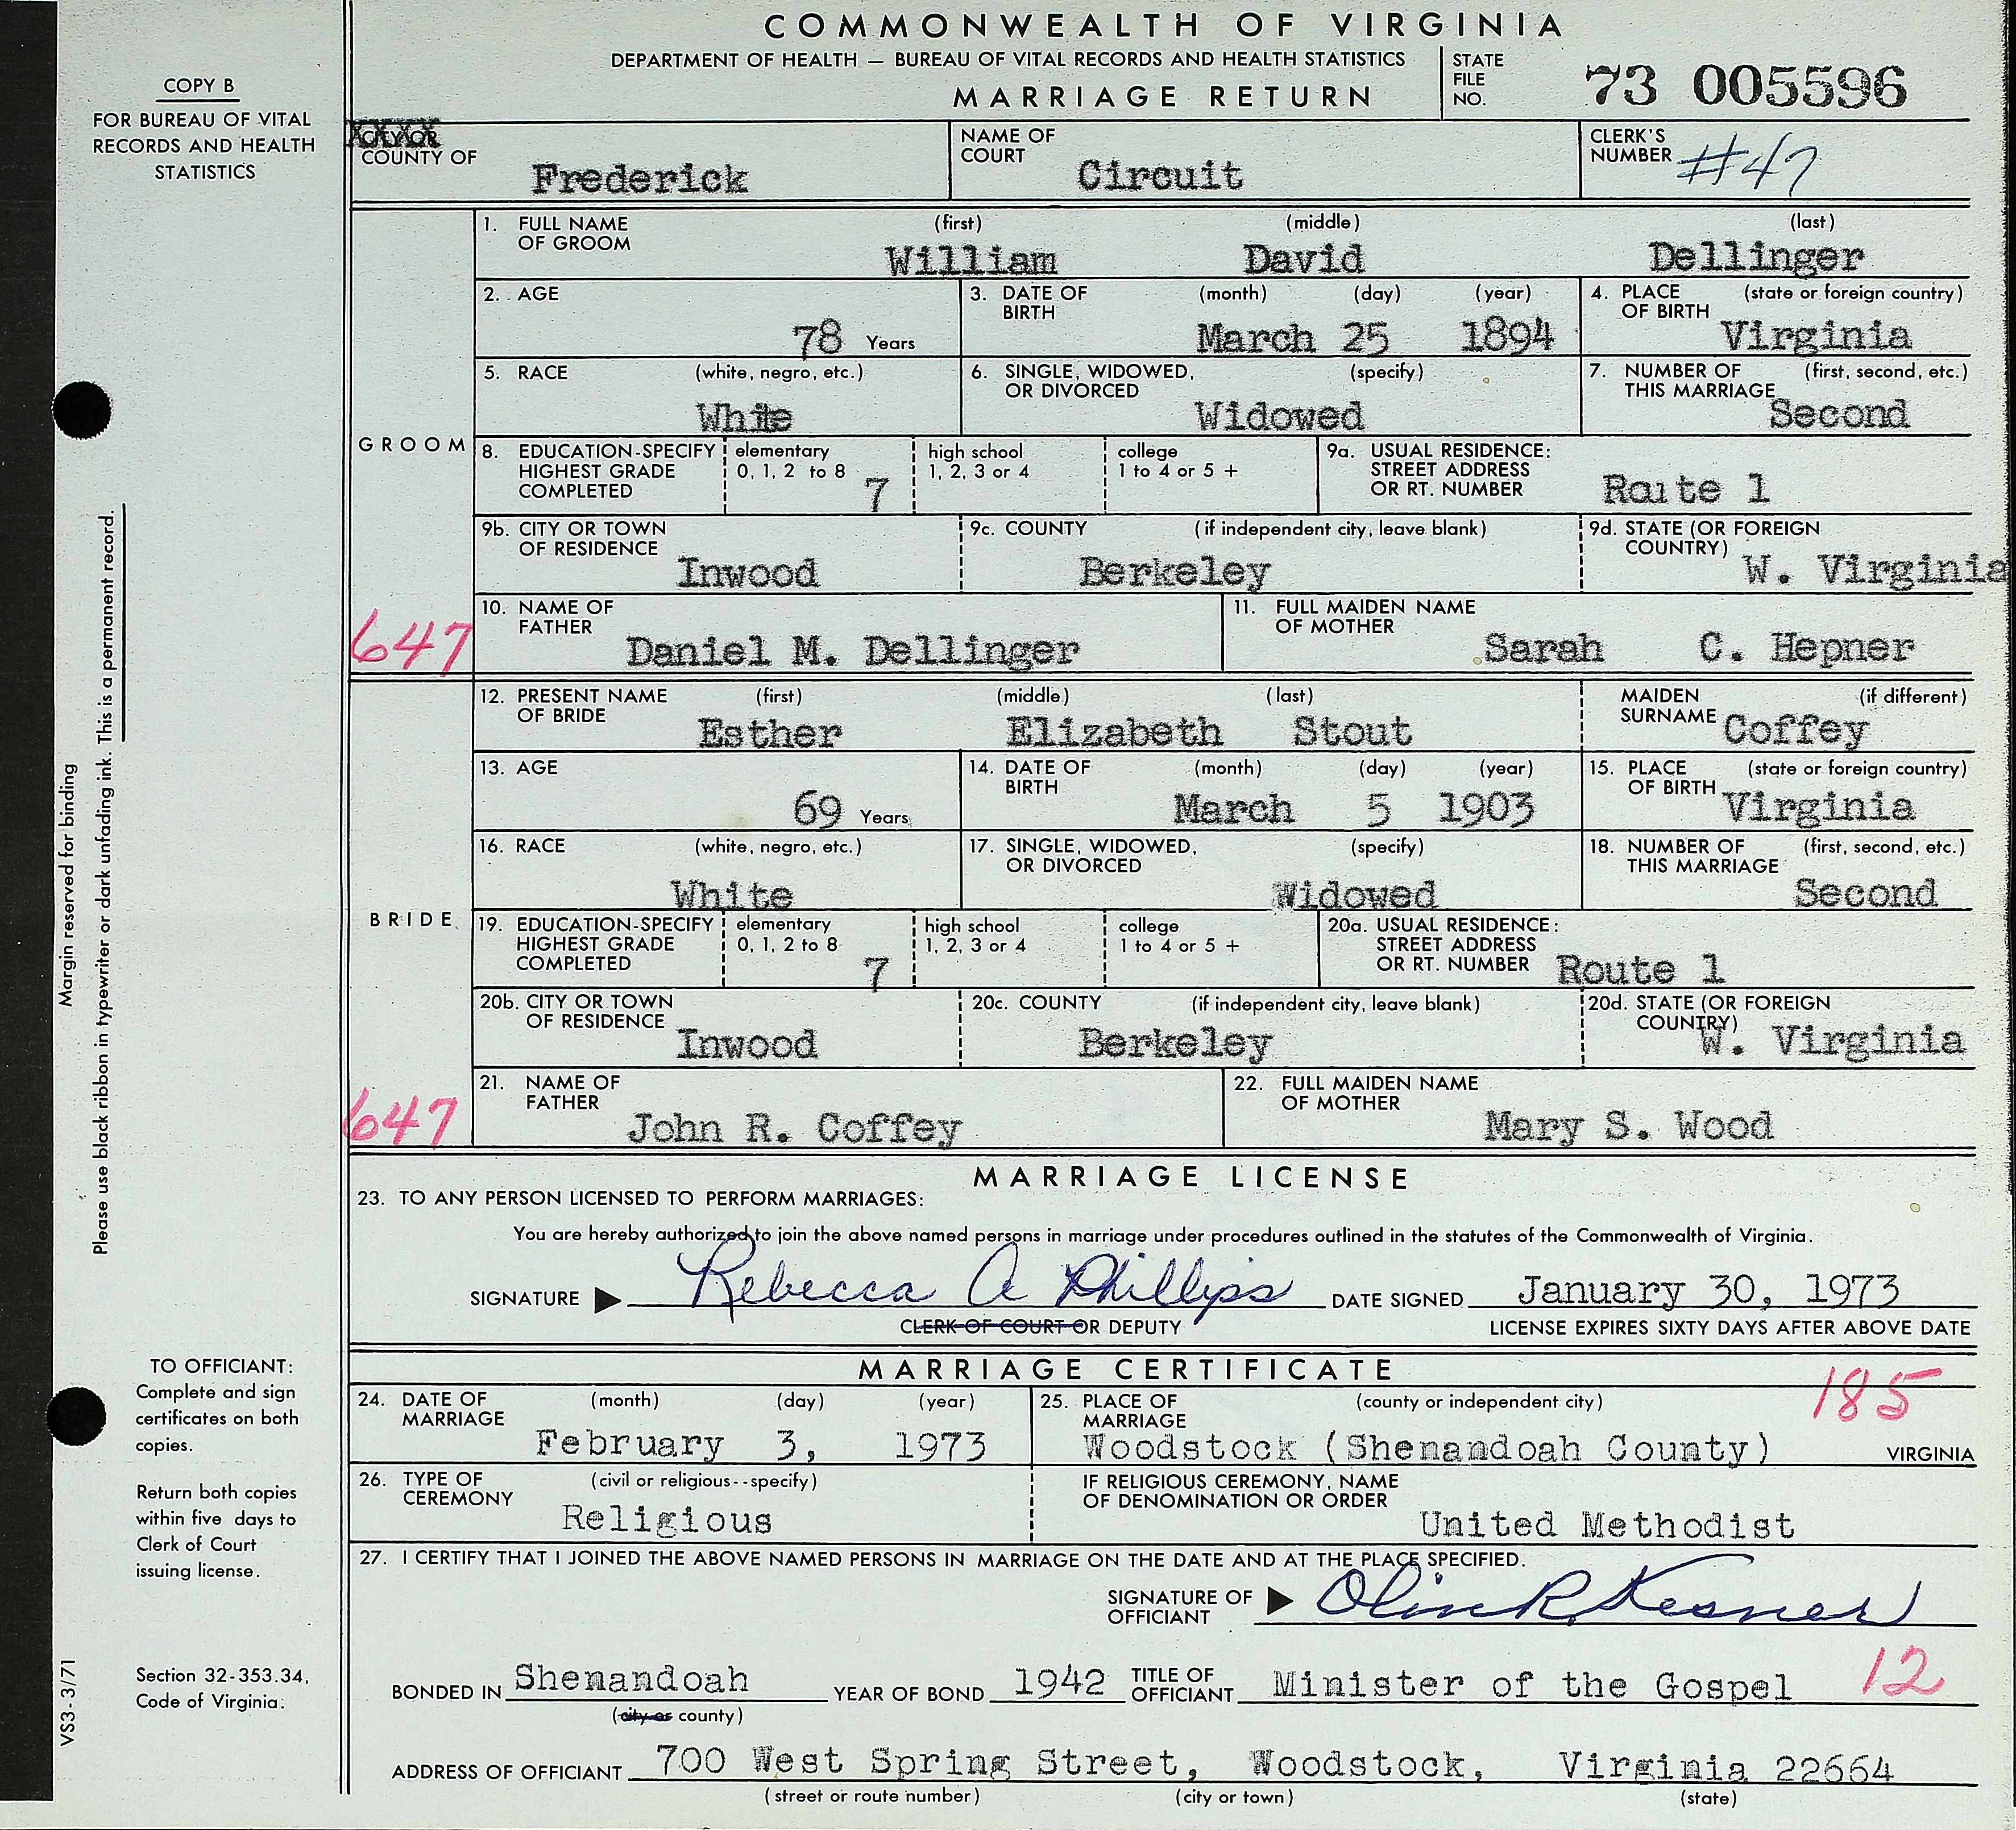 COMMONWEALTH OF VIRGINIA
DEPARTMENT OF HEALTH — BUREAU OF VITAL RECORDS AND HEALTH STATISTICS
MARRIAGE RETURN
STATE FILE NO. 73 005596
COPY B
FOR BUREAU OF VITAL
RECORDS AND HEALTH
STATISTICS
CITY OR XXXX
COUNTY OF Frederick
NAME OF COURT Circuit
CLERK'S NUMBER #47
GROOM
1. FULL NAME OF GROOM (first) William (middle) David (last) Dellinger
2. AGE 78 Years
3. DATE OF BIRTH (month) (day) (year) March 25 1894
4. PLACE OF BIRTH (state or foreign country) Virginia
5. RACE (white, negro, etc.) White
6. SINGLE, WIDOWED, OR DIVORCED (specify) Widowed
7. NUMBER OF THIS MARRIAGE (first, second, etc.) Second
8. EDUCATION-SPECIFY HIGHEST GRADE COMPLETED elementary 0, 1, 2 to 8 7 high school 1, 2, 3 or 4 college 1 to 4 or 5 +
9a. USUAL RESIDENCE: STREET ADDRESS OR RT. NUMBER Route 1
9b. CITY OR TOWN OF RESIDENCE Inwood
9c. COUNTY (if independent city, leave blank) Berkeley
9d. STATE (OR FOREIGN COUNTRY) W. Virginia
10. NAME OF FATHER Daniel M. Dellinger
11. FULL MAIDEN NAME OF MOTHER Sarah C. Hepner
647
BRIDE
12. PRESENT NAME OF BRIDE (first) Esther (middle) Elizabeth (last) Stout
MAIDEN SURNAME (if different) Coffey
13. AGE 69 Years
14. DATE OF BIRTH (month) (day) (year) March 5 1903
15. PLACE OF BIRTH (state or foreign country) Virginia
16. RACE (white, negro, etc.) White
17. SINGLE, WIDOWED, OR DIVORCED (specify) Widowed
18. NUMBER OF THIS MARRIAGE (first, second, etc.) Second
19. EDUCATION-SPECIFY HIGHEST GRADE COMPLETED elementary 0, 1, 2 to 8 7 high school 1, 2, 3 or 4 college 1 to 4 or 5 +
20a. USUAL RESIDENCE: STREET ADDRESS OR RT. NUMBER Route 1
20b. CITY OR TOWN OF RESIDENCE Inwood
20c. COUNTY (if independent city, leave blank) Berkeley
20d. STATE (OR FOREIGN COUNTRY) W. Virginia
21. NAME OF FATHER John R. Coffey
22. FULL MAIDEN NAME OF MOTHER Mary S. Wood
647
MARRIAGE LICENSE
23. TO ANY PERSON LICENSED TO PERFORM MARRIAGES:
You are hereby authorized to join the above named persons in marriage under procedures outlined in the statutes of the Commonwealth of Virginia.
SIGNATURE Rebecca A Phillips DATE SIGNED January 30, 1973
CLERK OF COURT OR DEPUTY
LICENSE EXPIRES SIXTY DAYS AFTER ABOVE DATE
MARRIAGE CERTIFICATE
185
24. DATE OF MARRIAGE (month) (day) (year) February 3, 1973
25. PLACE OF MARRIAGE (county or independent city) Woodstock (Shenandoah County) VIRGINIA
26. TYPE OF CEREMONY (civil or religious--specify) Religious
IF RELIGIOUS CEREMONY, NAME OF DENOMINATION OR ORDER United Methodist
27. I CERTIFY THAT I JOINED THE ABOVE NAMED PERSONS IN MARRIAGE ON THE DATE AND AT THE PLACE SPECIFIED.
SIGNATURE OF OFFICIANT Olin R. Kesner
BONDED IN Shenandoah (city or county) YEAR OF BOND 1942 TITLE OF OFFICIANT Minister of the Gospel 12
ADDRESS OF OFFICIANT 700 West Spring Street, Woodstock, Virginia 22664
(street or route number) (city or town) (state)
Margin reserved for binding
Please use black ribbon in typewriter or dark unfading ink. This is a permanent record.
TO OFFICIANT:
Complete and sign
certificates on both
copies.
Return both copies
within five days to
Clerk of Court
issuing license.
Section 32-353.34,
Code of Virginia.
VS3-3/71